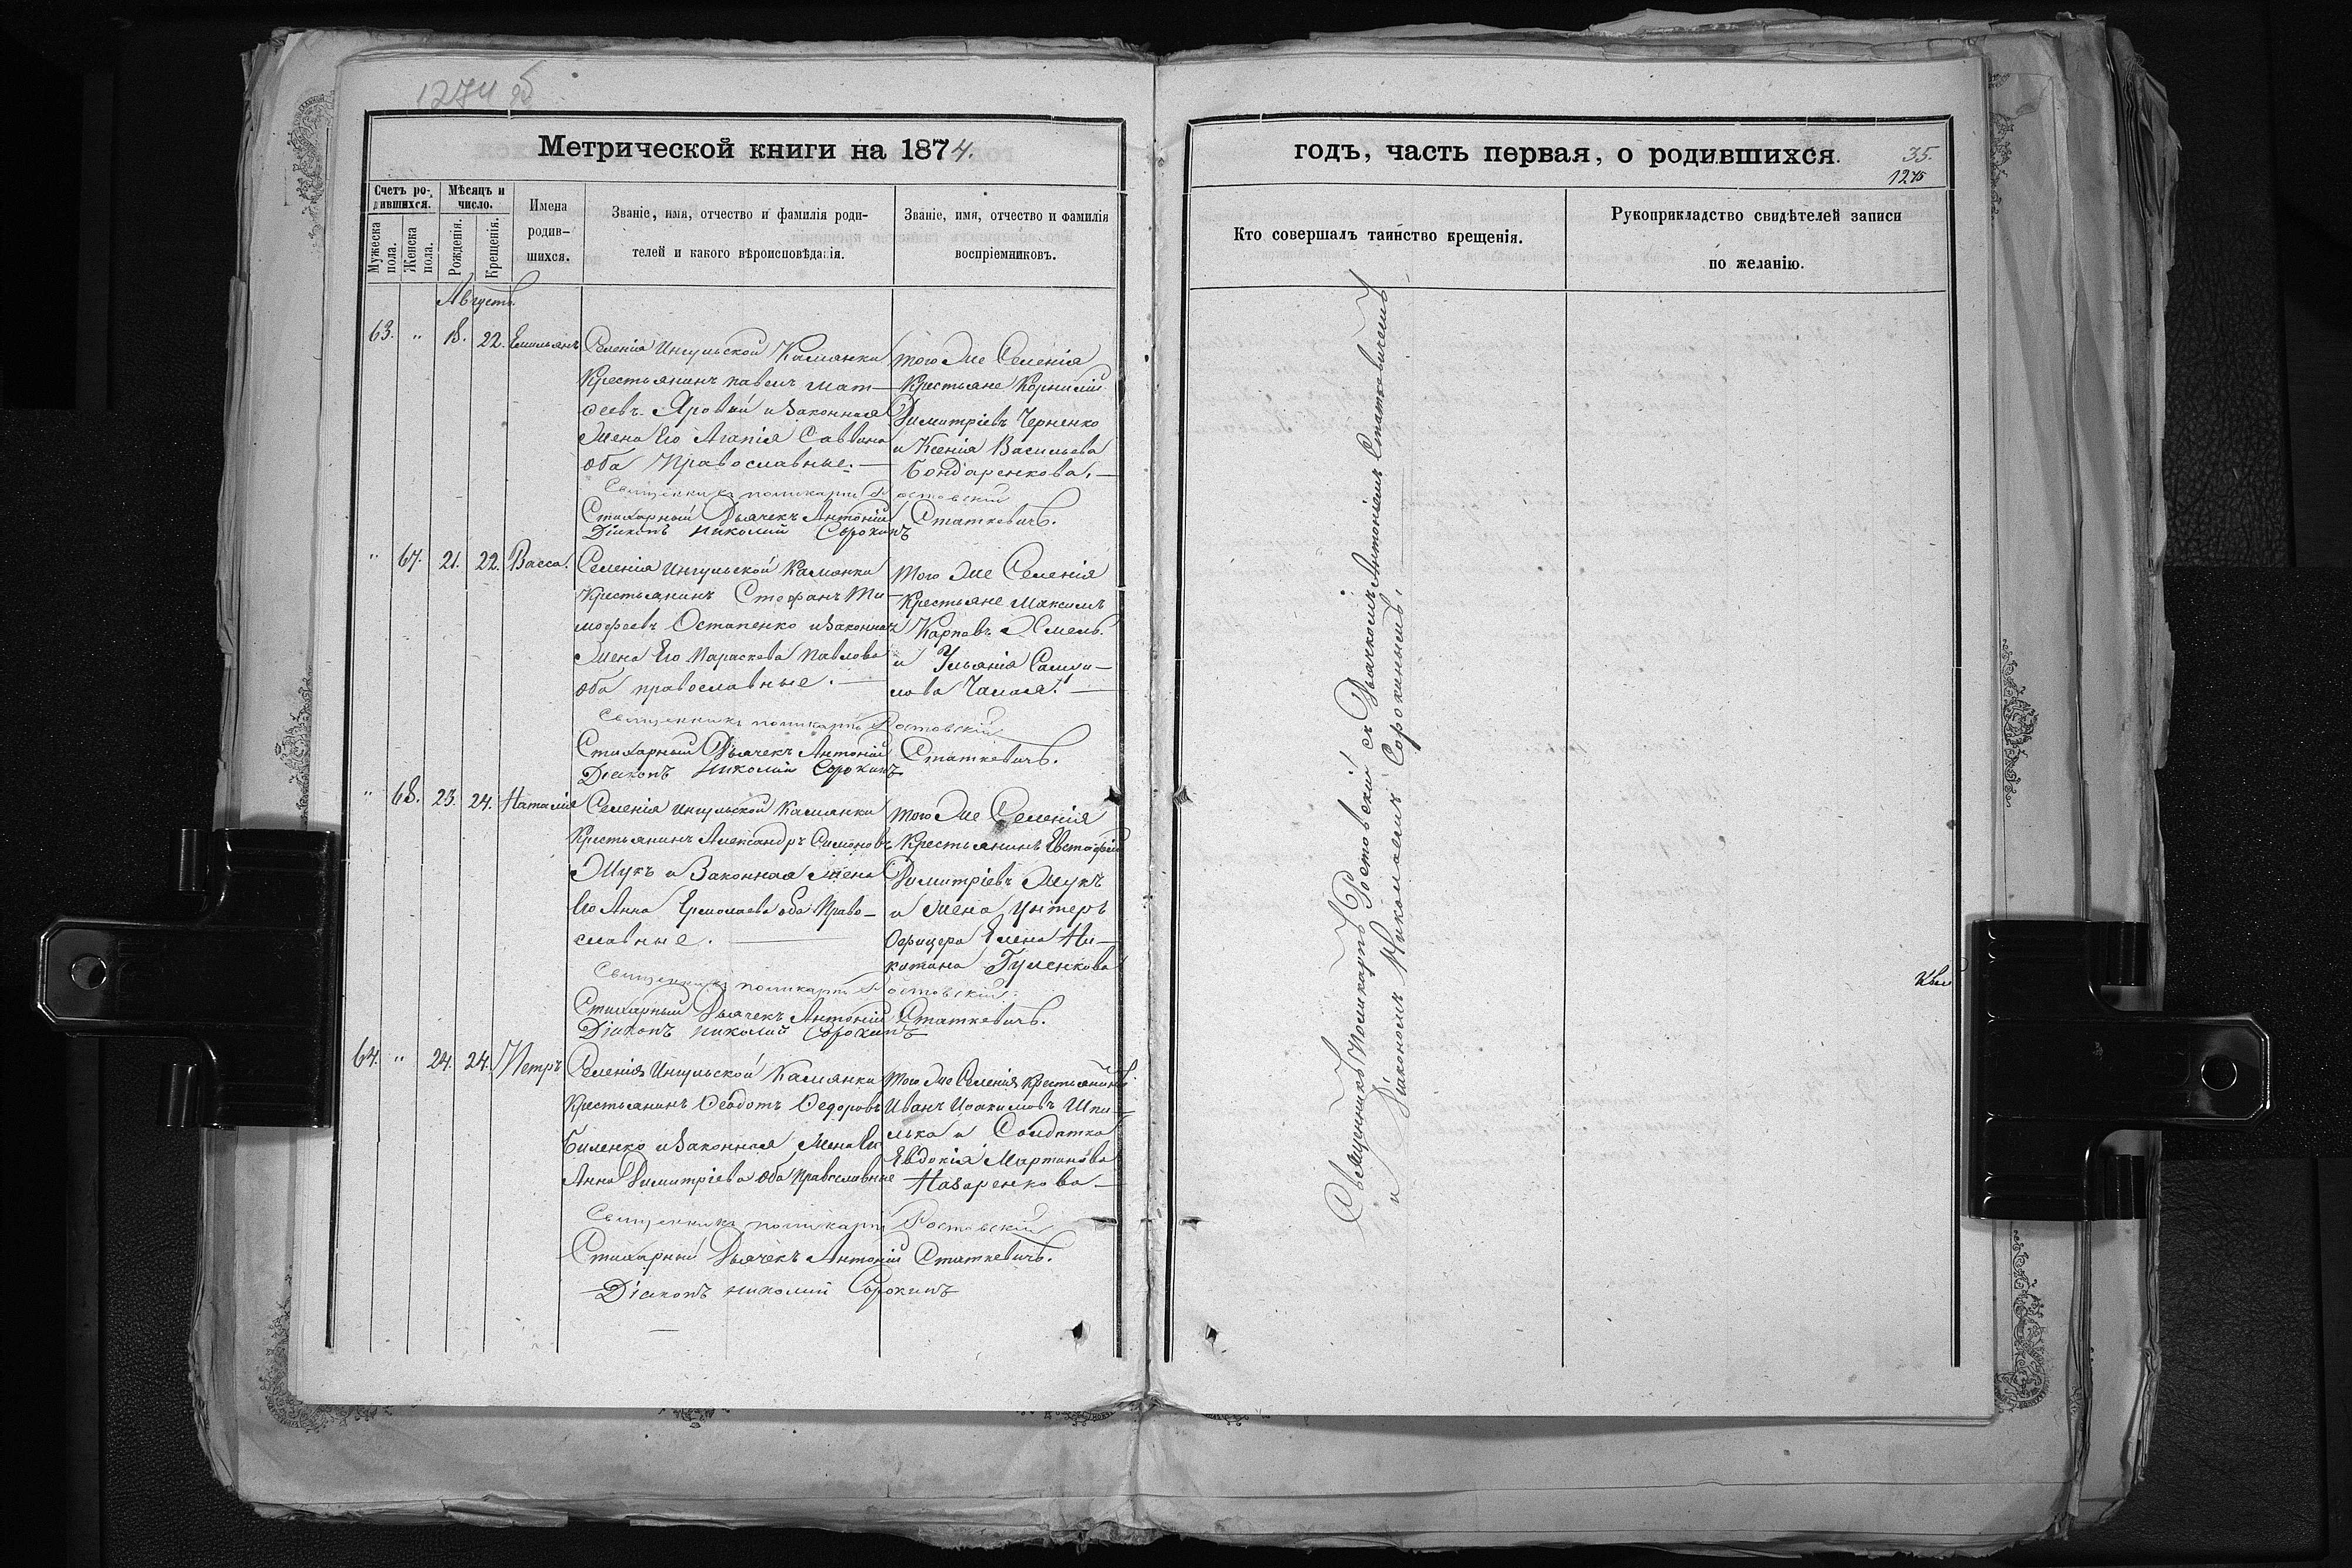 1274 об
Метрической книги на 1874.
Счетъ ро-
дившихся.
Мужеска
пола.
Женска
пола.
Мѣсяцъ и
число.
Рожденія.
Крещенія.
Имена
родив-
шихся.
Званіе, имя, отчество и фамилія роди-
телей и какого вѣроисповѣданія.
Званіе, имя, отчество и фамилія
воспріемниковъ.
Августъ.
63. " 18. 22. Емильянъ
Селенія Ингульской Камянки
Крестьянинъ павелъ мат-
феевъ Яровый и Законная
Жена Его Агапія Саввина
оба Православные. —
того Же Селенія
Крестьяне Корнилій
Димитріевъ Черненко
и Ксенія Васильева
Бондаренкова. —
Священникъ поликарпъ Ростовскій
Стихарный Дьячекъ Антоній Статкевичъ.
Діаконъ николай Сорокинъ
" 67. 21. 22. Васса.
Селенія Ингульской Камянки
Крестьянинъ Стефанъ Ти-
мофеевъ Остапенко и Законная
Жена Его Параскева Павлова
оба православные. —
того Же Селенія
Крестьяне Максимъ
Карповъ Хмель.
и Ульянія Самои-
лова Чалая. —
Священникъ поликарпъ Ростовскій
Стихарный Дьячекъ Антоній Статкевичъ.
Діаконъ николай Сорокинъ
" 68. 23. 24. Наталія
Селенія Ингульской Камянки
Крестьянинъ Александръ Симоновъ
Жукъ и Законная Жена
Его Анна Ермолаева оба Право-
славные. —
того Же Селенія
Крестьянинъ Евстафій
Димитріевъ Жукъ
и Жена Унтеръ
Офицера Елена Ни-
китина Гуленкова
Священникъ поликарпъ Ростовскій
Стихарный Дьячекъ Антоній Статкевичъ.
Діаконъ николай Сорокинъ
64. " 24. 24. Петръ
Селенія Ингульской Камянки
Крестьянинъ Феодотъ Федоровъ
Биленко и Законная Жена Его
Анна Димитріева оба Православные
того Же Селенія Крестьянинъ
Иванъ Иоакимовъ Шпи-
лька и Солдатка
Евдокія Мартинова
Назаренкова —
Священникъ поликарпъ Ростовскій
Стихарный Дьячекъ Антоній Статкевичъ.
Діаконъ николай Сорокинъ
годъ, часть первая, о родившихся.
35.
1275
Кто совершалъ таинство крещенія.
Рукоприкладство свидѣтелей записи
по желанію.
Священникъ Поликарпъ Ростовскій съ Дьячкомъ Антоніемъ Статкевичемъ
и Діакономъ Николаемъ Сорокинымъ.